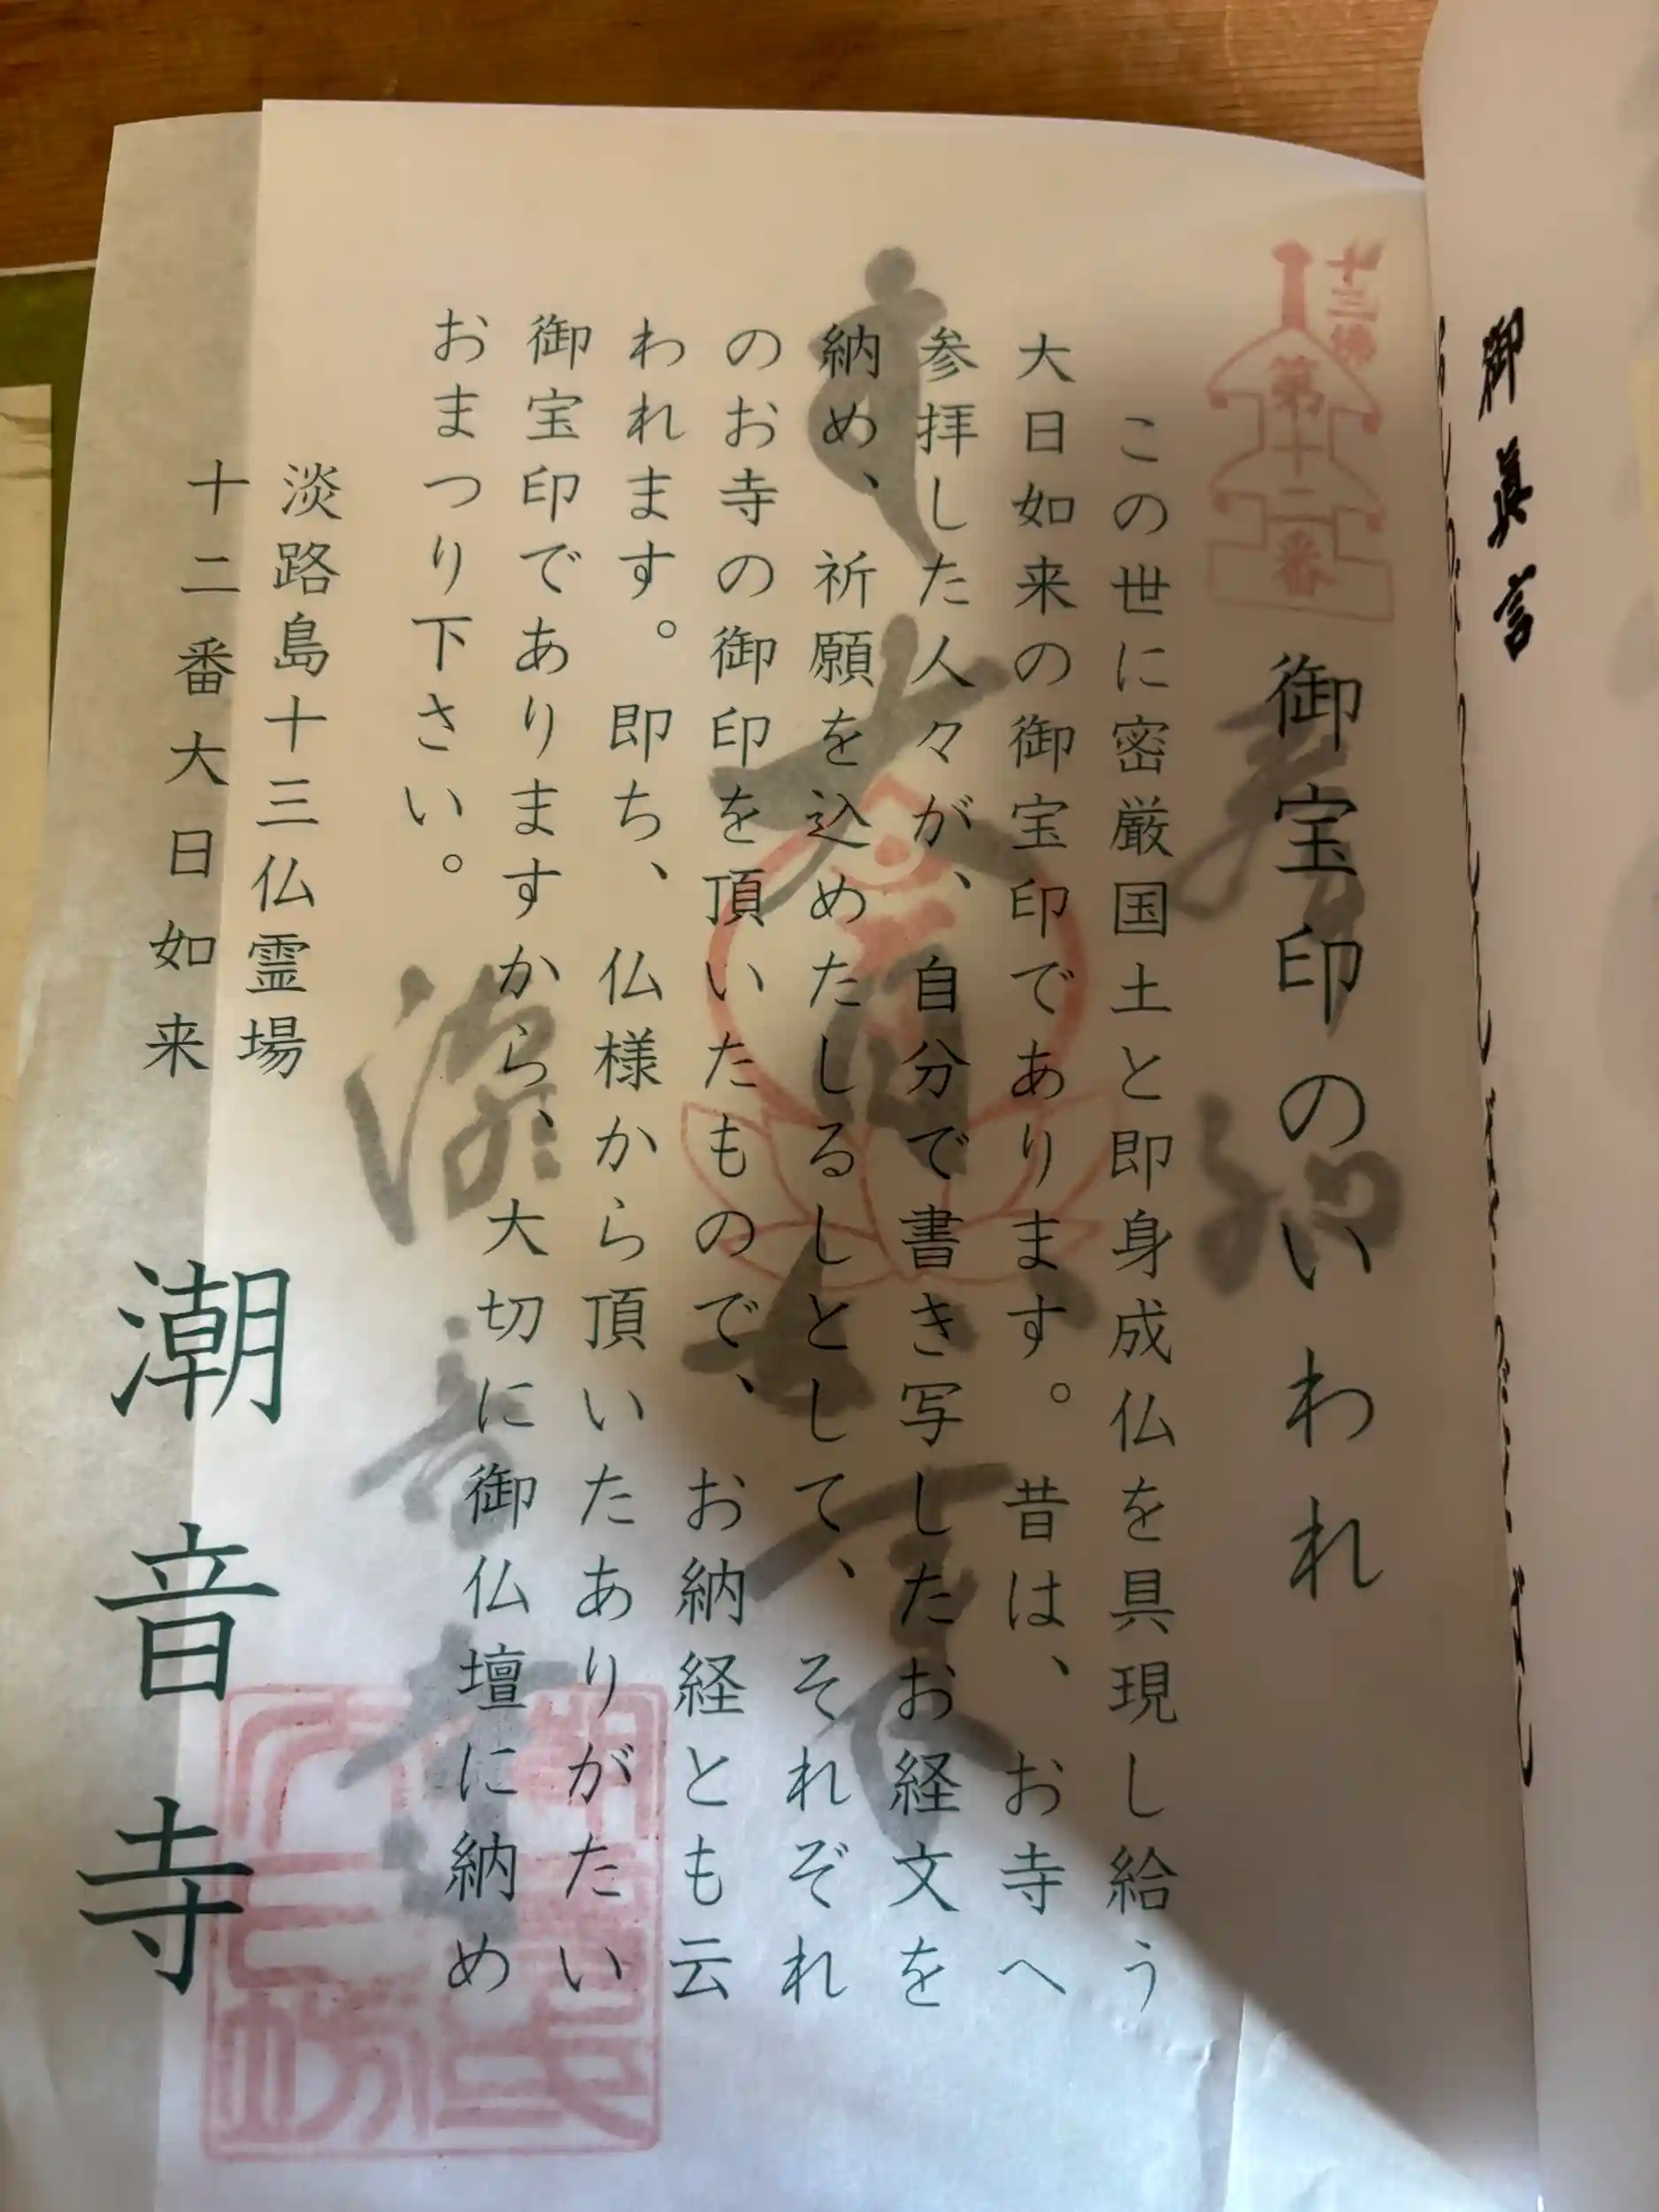 御真言
十三佛
第十二番
御宝印のいわれ
この世に密厳国土と即身成仏を具現し給う
大日如来の御宝印であります。昔は、お寺へ
参拝した人々が、自分で書き写したお経文を
納め、祈願を込めたしるしとして、それぞれ
のお寺の御印を頂いたもので、お納経とも云
われます。即ち、仏様から頂いたありがたい
御宝印でありますから、大切に御仏壇に納め
おまつり下さい。
淡路島十三仏霊場
十二番大日如来
潮音寺
奉
大日如来
潮音寺